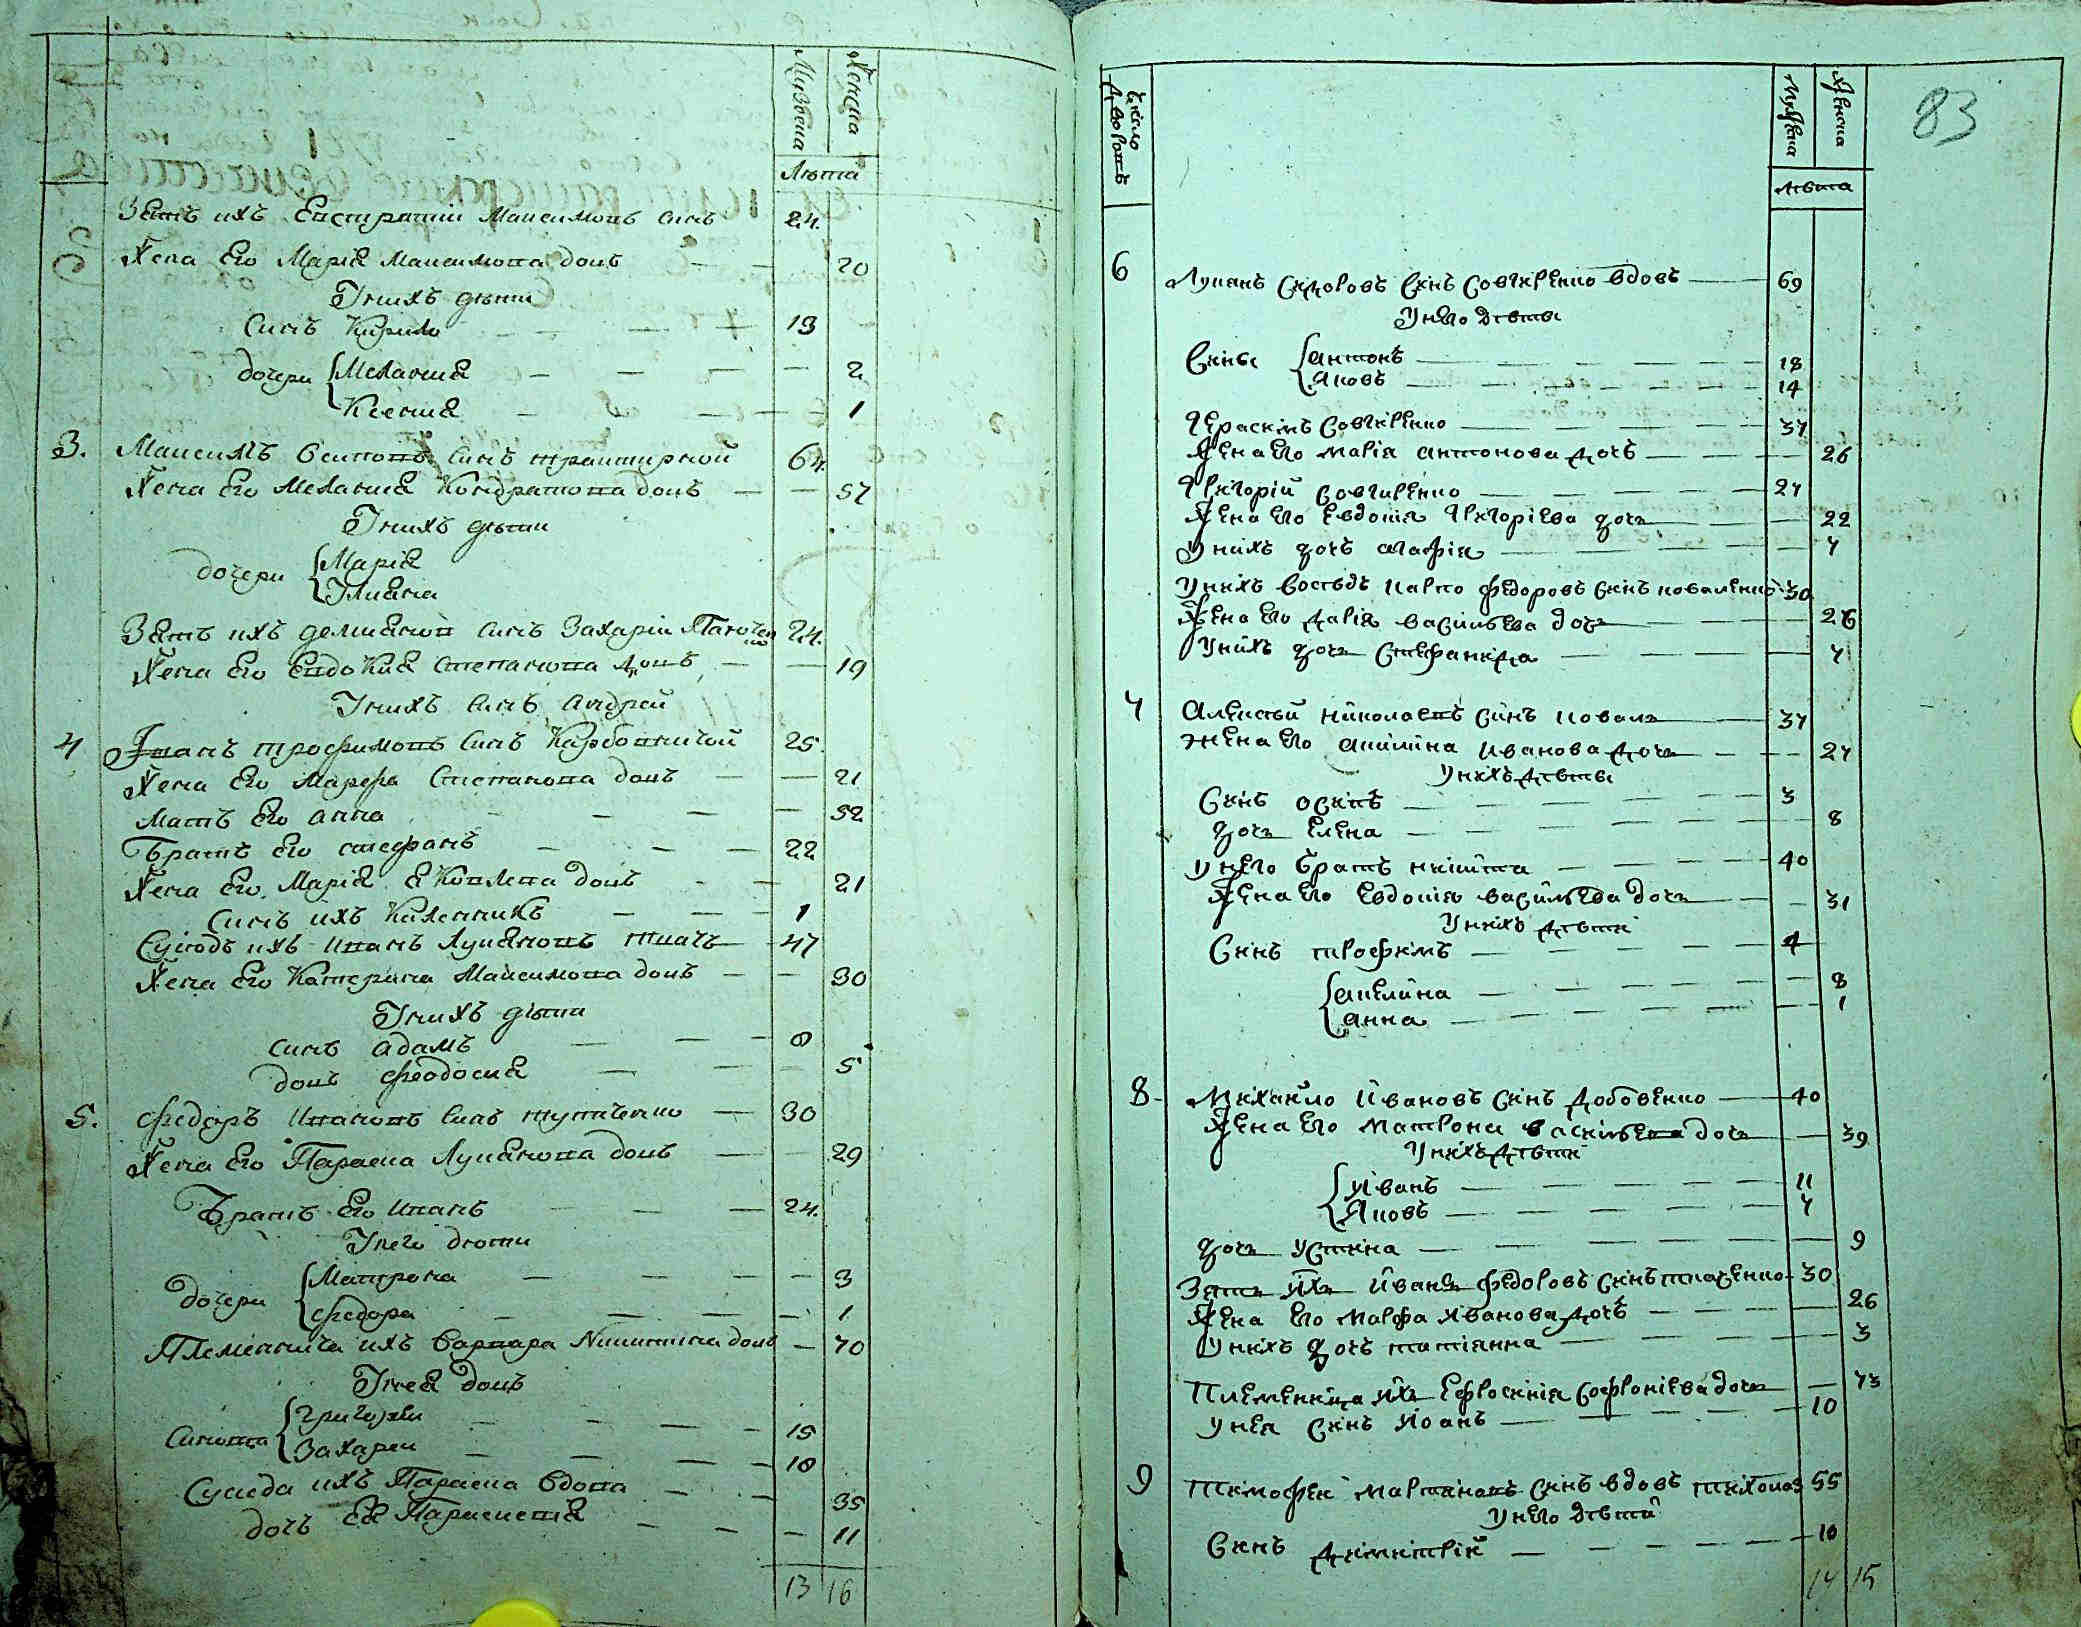 Мужеска
Женска
Лѣта
Зять ихъ Евстратій Максимовъ синъ 24.
Жена Его Марія Максимова дочь 20
Унихъ дѣти
Синъ Кирило 13
дочери Меланія 2
Ксенія 1
3. Максимъ Осиповъ синъ 64.
Жена Его Меланія Кондратова дочь 57
Унихъ дѣти
дочери Марія
Улиана
Зять ихъ демиянов синъ Захарій 24.
Жена Его Евдокия Степанова дочь 19
Унихъ Синъ андрей
4 Иванъ трофимовъ Синъ 25
Жена Его Марфа Степанова дочь 21
Мать Его анна 52
Братъ Его стефанъ 22
Жена Его Марія Яковлева дочь 21
Синъ ихъ Каленикъ 1
Сусюдъ ихъ Иванъ Лукяновъ ткачъ 47
Жена Его Катерина Максимова дочь 30
Унихъ дѣти
синъ адамъ 8
дочь феодосия 5
5. Федоръ Ивановъ Синъ 30
Жена Его Параска Лукянова дочь 29
Братъ Его Иванъ 24.
Унего дѣти
дочери Матрона 3
Федора 1
Племенница ихъ Варвара Никитина дочь 70
Унея дочь
Синовя Григорій 15
Захарій 10
Сусѣда ихъ Параска Вдова 35
дочь ея Параскевія 11
13 16
Число дворовъ
Мужеска
Женска
Лѣта
83
6 Лукянъ Сидоровъ Синъ Совгиренко вдовъ 69
Унего дѣты
Сины антонъ 18
Яковъ 14
Гераскимъ Совгиренко 37
Жена Его Марія антонова дочъ 26
Григорій Совгиренко 27
Жена Его Евдокія Григоріева дочь 22
Унихъ дочъ агафія 7
Унихъ Сосѣдъ Карпо Федоровъ Синъ коваленко 30
Жена Его Дарія Василіева дочь 26
Унихъ дочь Стефанида 7
7 Алексѣй Николаевъ Синъ коваль 37
Жена Его акилина Иванова дочь 27
Унихъ дѣты
Синъ Осипъ 3
дочь Елена 8
Унего братъ никита 40
Жена Его Евдокія Василіева дочь 31
Унихъ дѣти
Синъ трофимъ 4
акелина 8
анна 1
8 Михайло Ивановъ Синъ Довбенко 40
Жена Его Матрона Василіева дочь 39
Унихъ дѣти
Иванъ 11
Яковъ 7
дочь Устина 9
Зять Ихъ Иванъ Федоровъ Синъ ткаченко 30
Жена Его Марфа Иванова дочъ 26
Унихъ дочъ татіянна 3
Племеница Ихъ Ефросинія Софроніева дочь 73
Унея Синъ Иоанъ 10
9 Тимофей Мартиновъ Синъ вдовъ 55
Унего дѣти
Синъ Димитрій 10
14 15